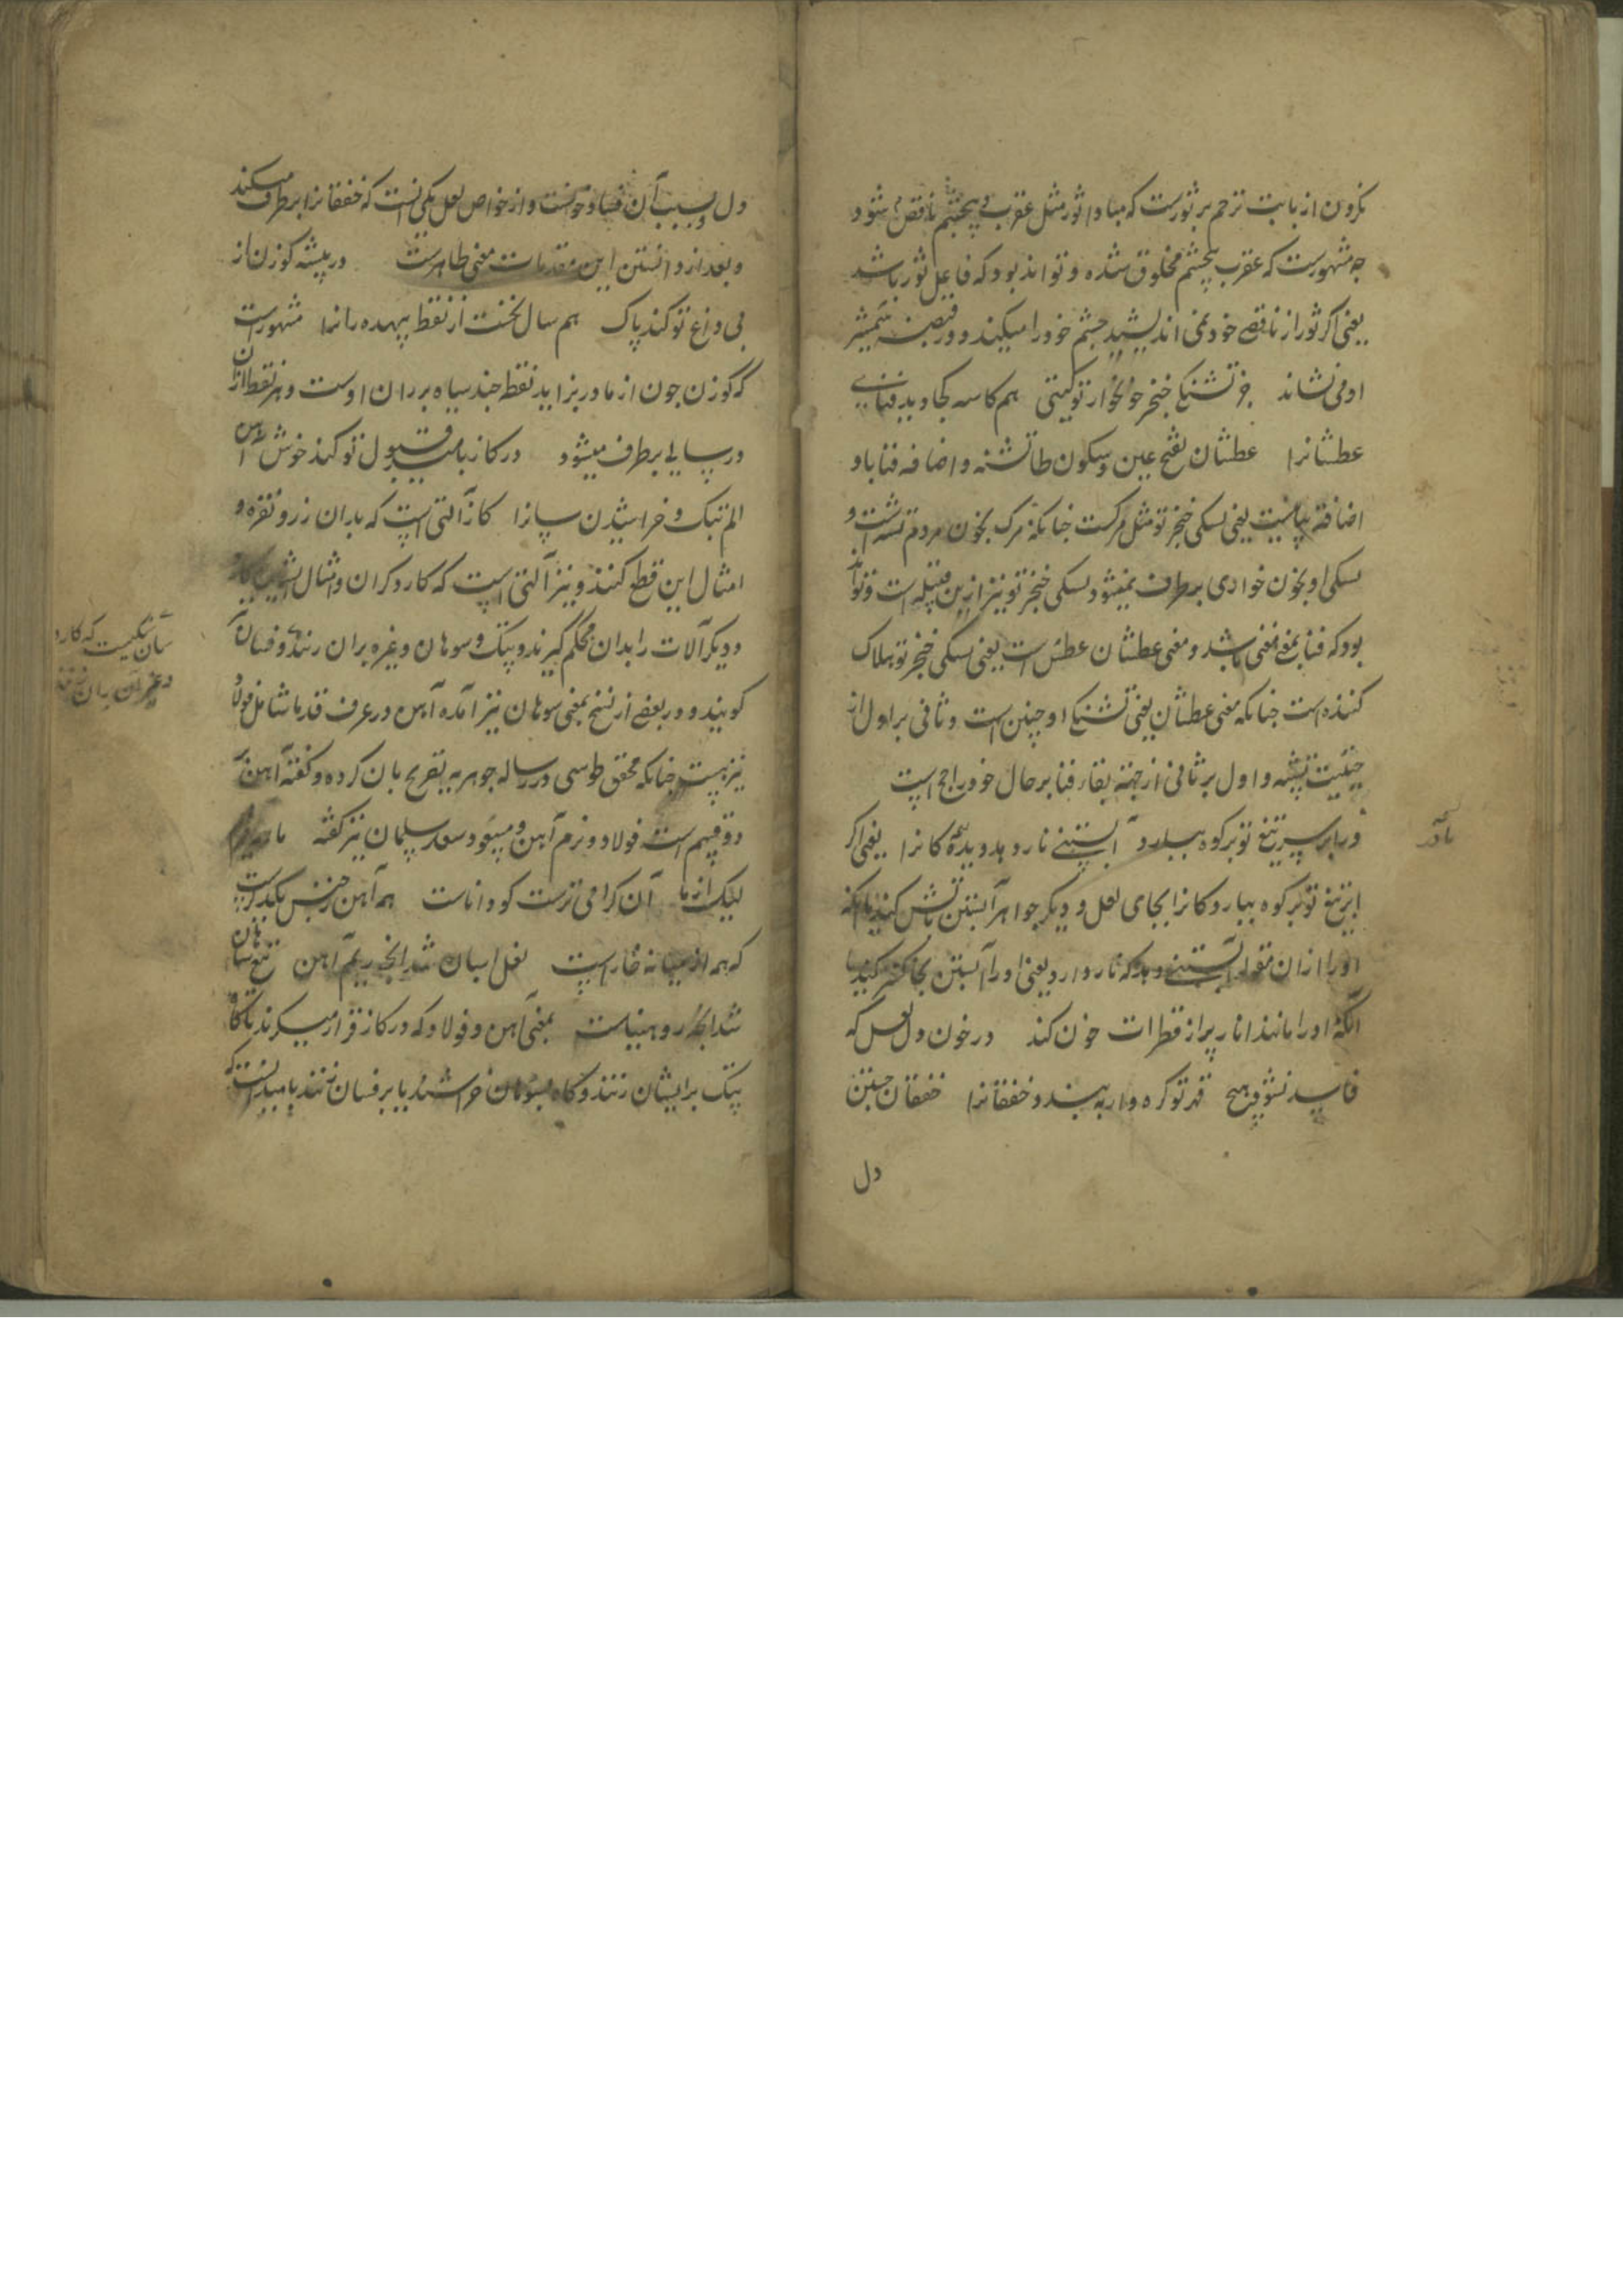 نکردن از بابت ترحم بر ثورست که مبادا ثور مثل عقرب بی چشم ناقص شود و
چه مشهورست که عقرب بیچشم مخلوق شده و تواند بود که فاعل ثور باشد
یعنی اگر ثور از ناقصی خود نمی اندیشید چشم خود را میکند و در قبضه شمشیر
او می نشاند جز تشنگی خنجر خونخوار تو گیتی هم کاسه کجا دید فنای
عطشانرا عطشان بفتح عین و سکون طا تشنه و اضافه فنا باو
اضافه بیانیست یعنی تشنگی خنجر تو مثل مرگست چنانکه مرگ بخون مردم تشنه است و
تشنگی او بخون خواری برطرف نمیشود تشنگی خنجر تو نیز ازین قبیله است و تواند
بود که فنا بمعنی مفنی باشد و معنی عطشان عطش است یعنی تشنگی خنجر تو هلاک
کننده است چنانکه معنی عطشان یعنی تشنگی او چنین است و ثانی بر اول از
حیثیت تشبیه و اول بر ثانی از جهة بقاء فنا بر حال خود راجح است
ور ابر سر تیغ تو بر کوه ببارد آبستنی نار دهد دیده کانرا یعنی اگر
ابر تیغ تو بر کوه ببارد کانرا بجای لعل و دیگر جواهر آبستن باتش کند یا آنکه
او را ازان مقوله آبستنی دهد که نار دارد یعنی او را آبستن بخاکستر کند یا
آنکه او را مانند انار پر از قطرات خون کند در خون دل لعل که
فاسد نشود هیچ قهر تو گره وار ببیند و خفقانرا خفقان جستن
دل
نادر
دل و سبب آن فساد خونست و از خواص لعل یکی آنست که خفقانرا برطرف میکند
و بعد از دانستن این مقدمات معنی ظاهرست در بیشه گوزن از
پی داغ تو کند پاک هم سال نخست از نقط بیهده رانرا مشهورست
که گوزن چون از مادر بزاید نقطه چند سیاه بر ران اوست و هر نقطه ازان
در سالی برطرف میشود در گاز بامید قبول تو کند خوش آهن
الم پتک و خراشیدن سانرا گاز آلتی است که بدان زر و نقره و
امثال این قطع کنند و نیز آلتی است که کاردگران و امثال ایشان
و دیگر آلات را بدان محکم گیرند و پتک و سوهان و غیره بران زنند و فسان
گویند و در بعضی از نسخ بمعنی سوهان نیز آمده آهن در عرف قدما شامل فولاد
نیز هست چنانکه محقق طوسی در رساله جوهریه تصریح بان کرده و گفته آهن
دو قسم است فولاد و نرم آهن و مسعود سعد سلمان نیز گفته
لیک از ما آن گرامی ترست کو داناست همه آهن ز جنس یکدیگرست
که همه از میانه خار است نعل اسبان شد آنچه ریم آهن تیغ شاهان
شد آنکه روهیناست بمعنی آهن و فولاد که در گاز قرار میگیرند تا گاه
پتک بر ایشان زنند و گاه بسوهان خراشند یا بر فسان زنند بامید آنست که
سان سنگیست که کارد
و غیر آن بران